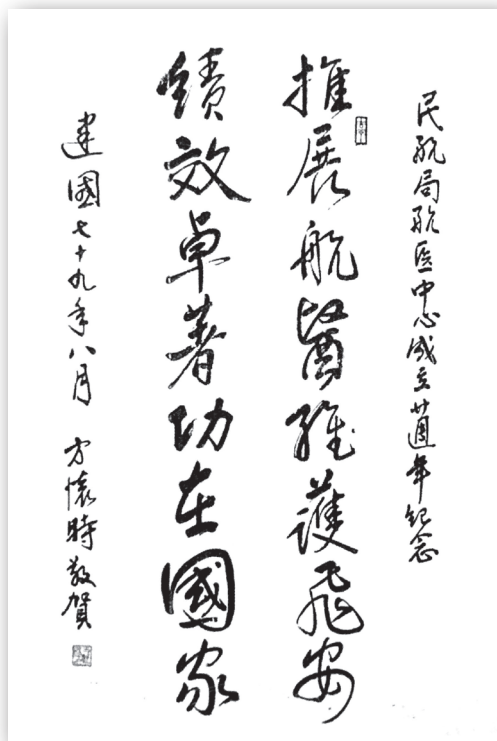 民航局航医中心成立廿週年紀念
推展航醫維護飛安
績效卓著功在國家
建國七十九年八月 方懷時敬賀